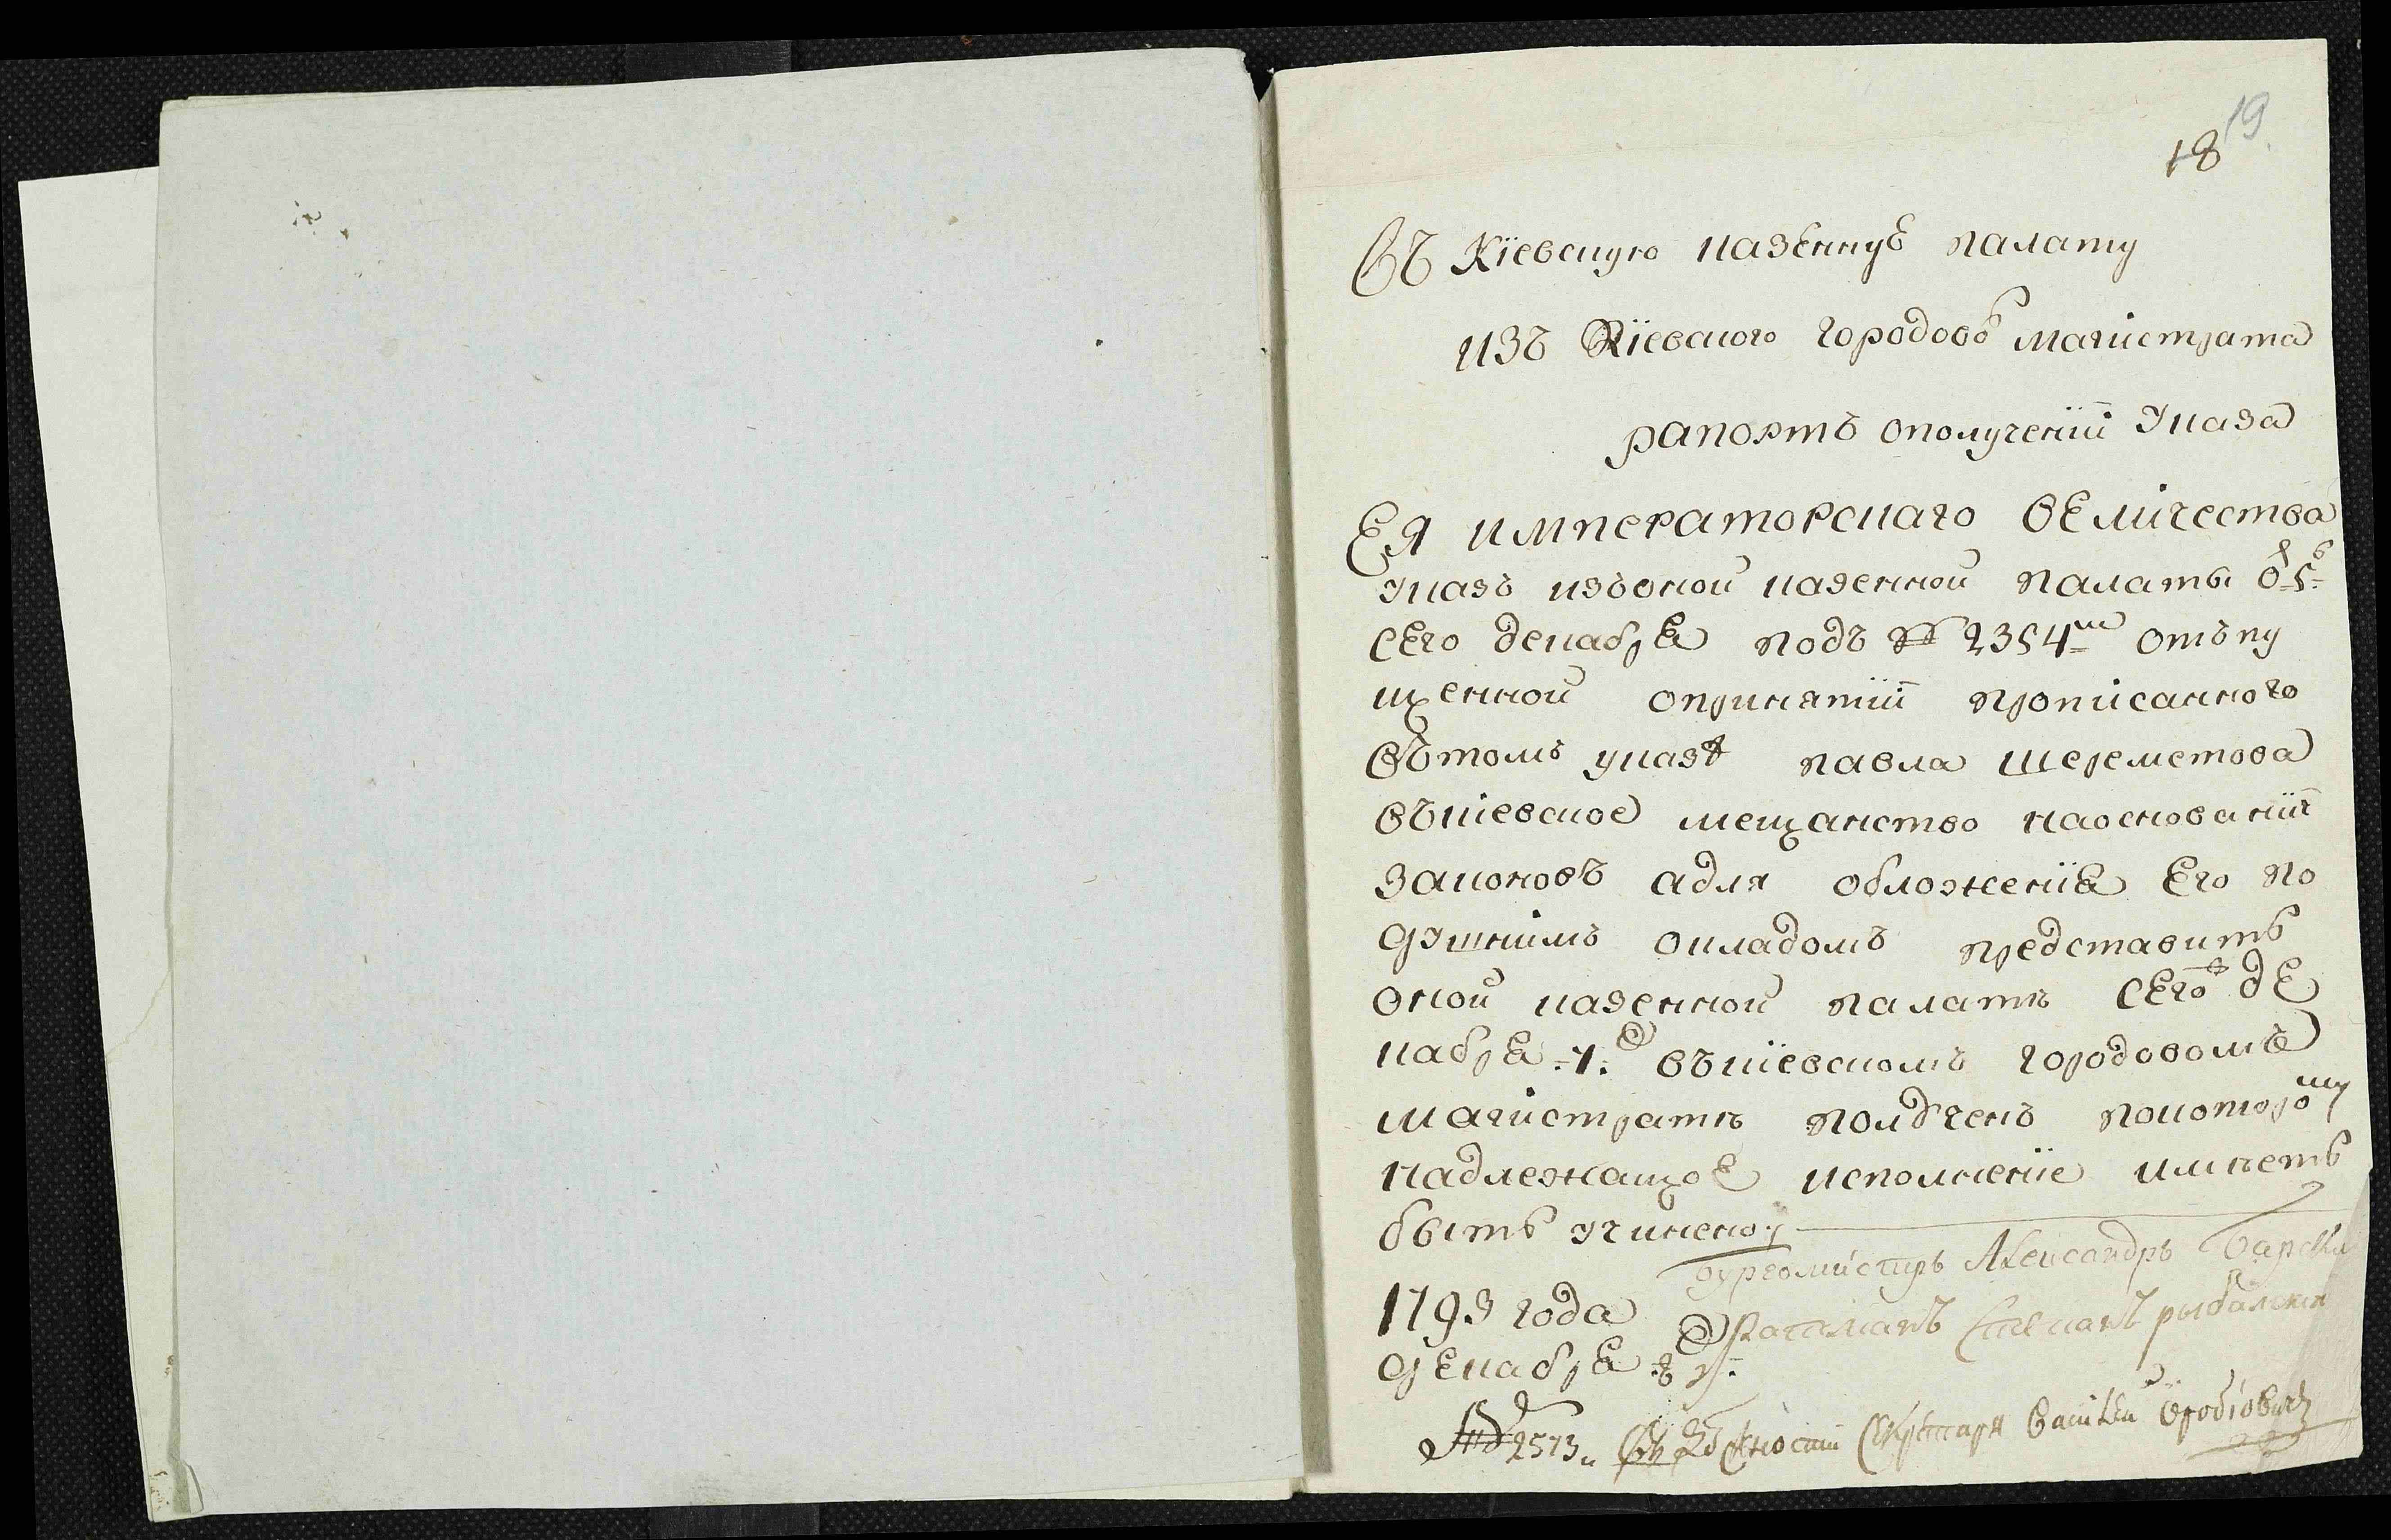 19
18
Въ Кїевсную казеннує палату
изъ Кїевского городовѣ магистрата
рапортъ ополученїи Указа
Ея императорскаго величества
Указъ изъоной казенной палаты
сего декабря подъ № 2354 отъпу
щенной опринятїи прописанного
вътомъ указѣ павла шереметова
въкіевское мещанство наоснованїи
законовъ адля обложенїя Его по
душнимъ окладомъ представить
оной казенной палатѣ сего де
кабря въкїевскомъ городовомъ
магистратѣ полученъ покоторому
надлежащое исполненїе имѣетъ
быть учинено
бургомистръ Александръ Барски
1793 года Ратманъ Степанъ рыбалскїи
декабря
№ 2573 Въ должности Секретаря Василїй